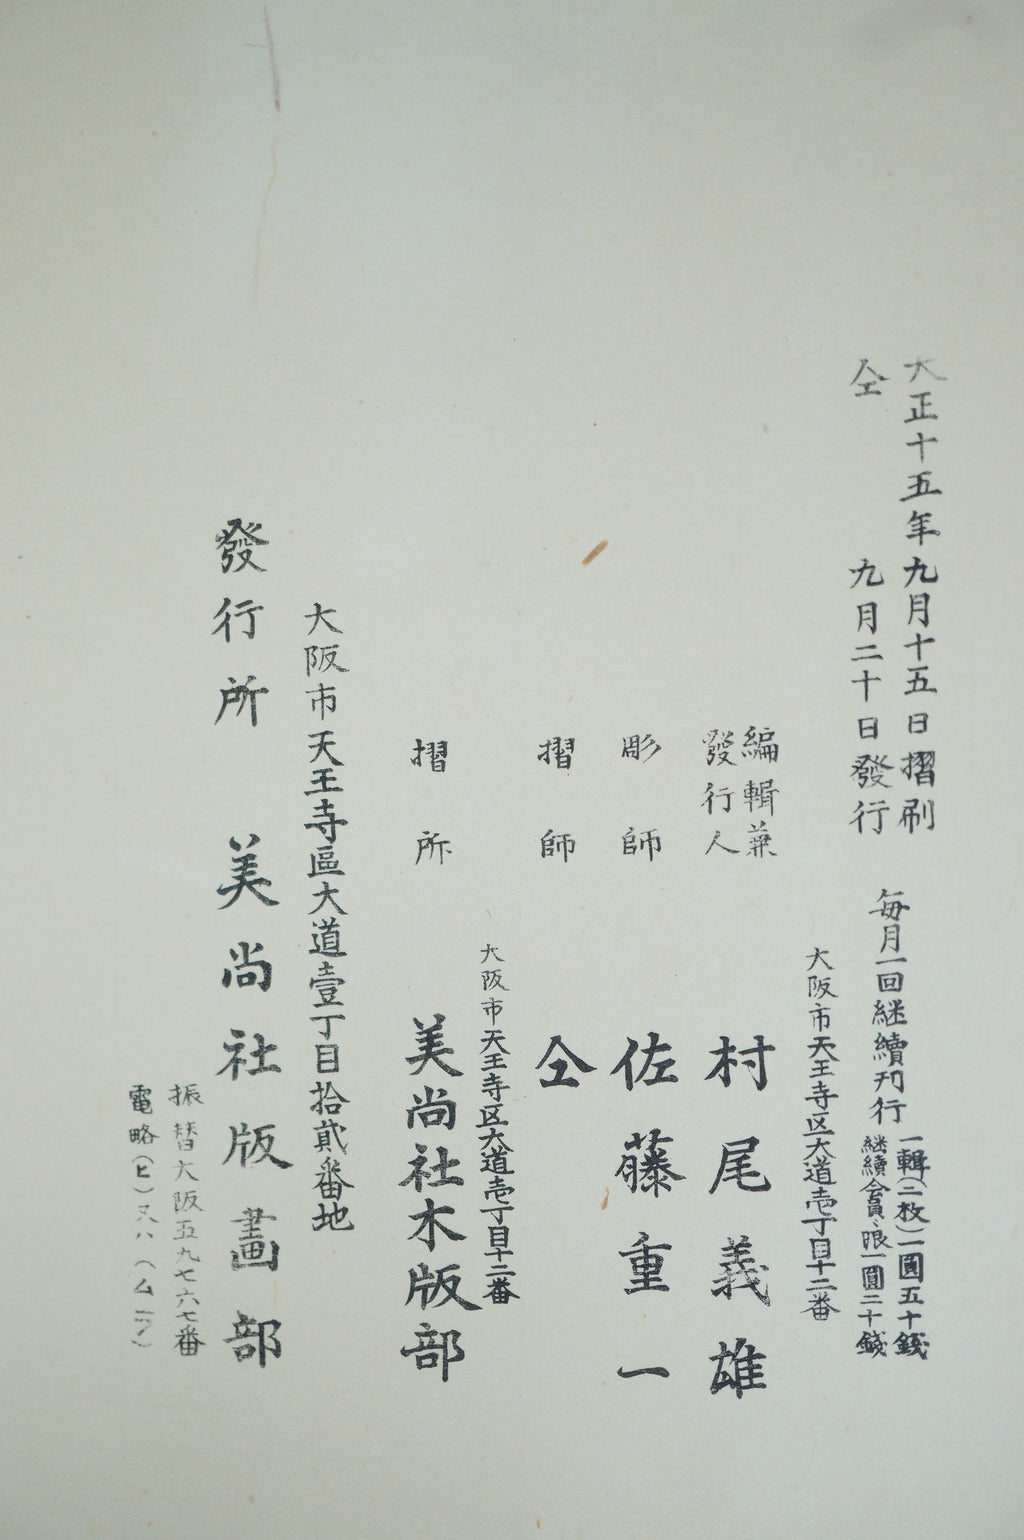 大正十五年九月十五日摺刷
仝 九月二十日發行
毎月一回継續刊行
一輯(二枚)一圓五十錢
継續會員ニ限一圓二十錢
大阪市天王寺区大道壱丁目十二番
編輯兼
發行人
村尾義雄
彫師 佐藤重一
摺師 仝
大阪市天王寺区大道壱丁目十二番
摺所 美尚社木版部
大阪市天王寺區大道壹丁目拾貳番地
發行所 美尚社版畫部
振替大阪五九七六七番
電略(ヒ)又ハ(ムラ)